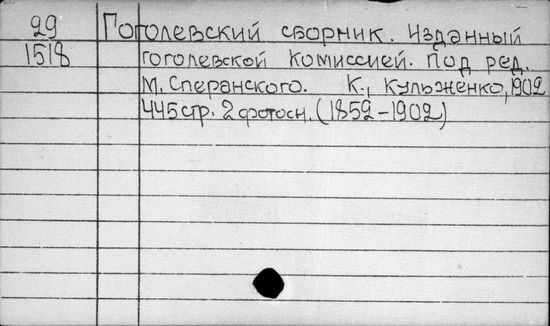 29 Гоголевский сборник. Изданный
1518 гоголевской комиссией. Под ред.
М. Сперанского. К., Кульженко, 1902
445 стр. 2 фотосн. (1852-1902)